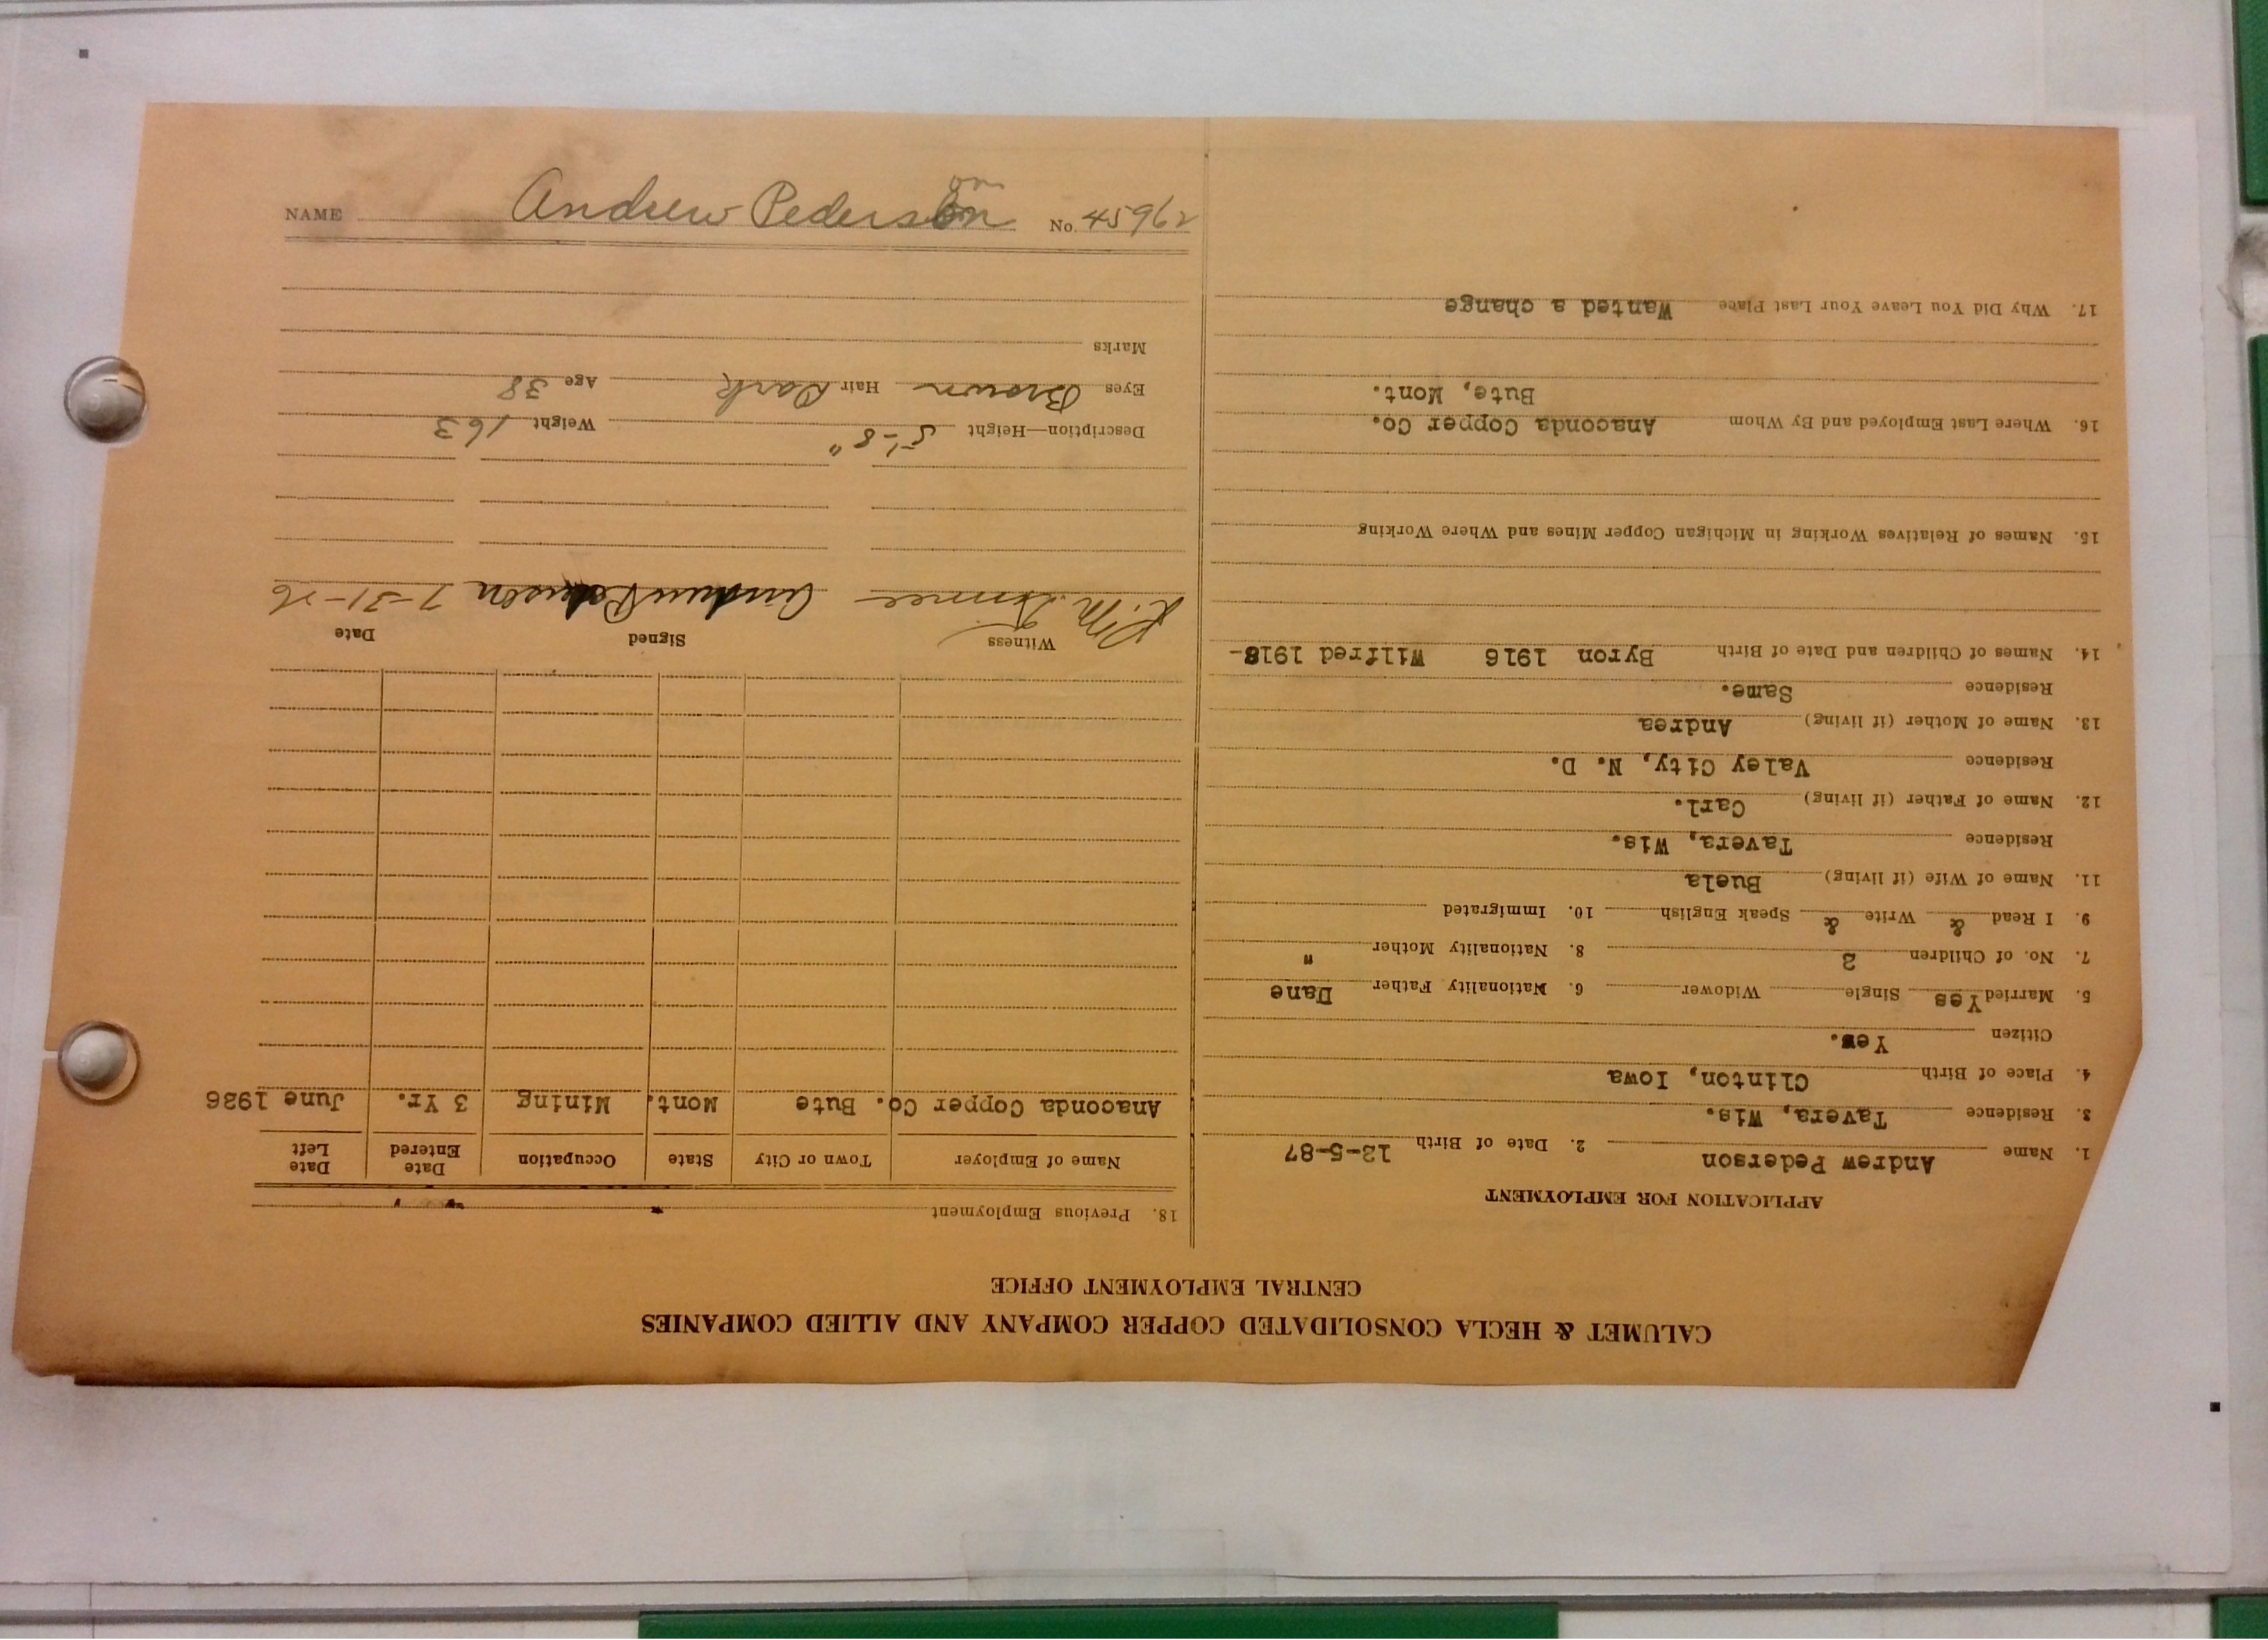 CALUMET & HECLA CONSOLIDATED COPPER COMPANY AND ALLIED COMPANIES
CENTRAL EMPLOYMENT OFFICE
APPLICATION FOR EMPLOYMENT
1. Name Andrew Pederson 2. Date of Birth 12-5-87
3. Residence Tavera, Wis.
4. Place of Birth Clinton, Iowa
Citizen Yes.
5. Married Yes Single Widower 6. Nationality Father Dane
7. No. of Children 2 8. Nationality Mother "
9. I Read & Write & Speak English 10. Immigrated
11. Name of Wife (if living) Buela
Residence Tavera, Wis.
12. Name of Father (if living) Carl.
Residence Valey City, N. D.
13. Name of Mother (if living) Andrea
Residence Same.
14. Names of Children and Date of Birth Byron 1916 Wilfred 1918-
15. Names of Relatives Working in Michigan Copper Mines and Where Working
16. Where Last Employed and By Whom Anaconda Copper Co.
Bute, Mont.
17. Why Did You Leave Your Last Place Wanted a change
18. Previous Employment
Name of Employer Town or City State Occupation Date Entered Date Left
Anaconda Copper Co. Bute Mont. Mining 3 Yr. June 1926
Witness Signed Date
Andrew Pederson 7-31-26
Description—Height 5'-8" Weight 163
Eyes Brown Hair Dark Age 38
Marks
NAME Andrew Pederson No. 45962
on